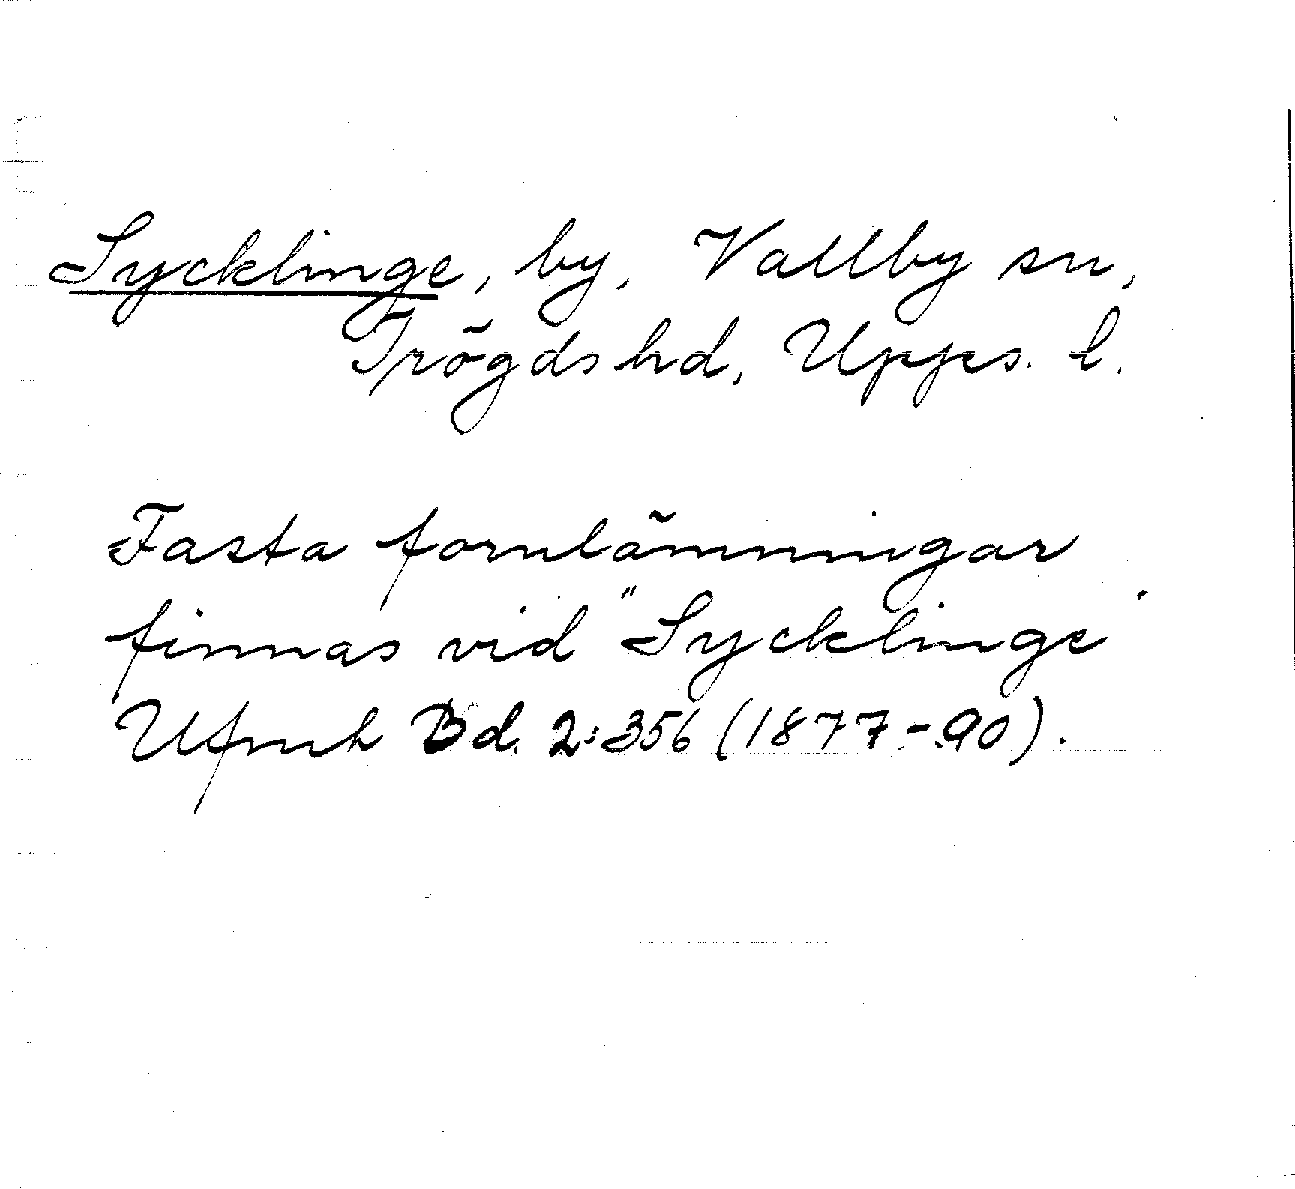 Sycklinge, by, Vallby sn,
Trögds hd, Upps. l.
Fasta fornlämningar
finnas vid "Sycklinge"
Ufmh Bd. 2:356 (1877-90).